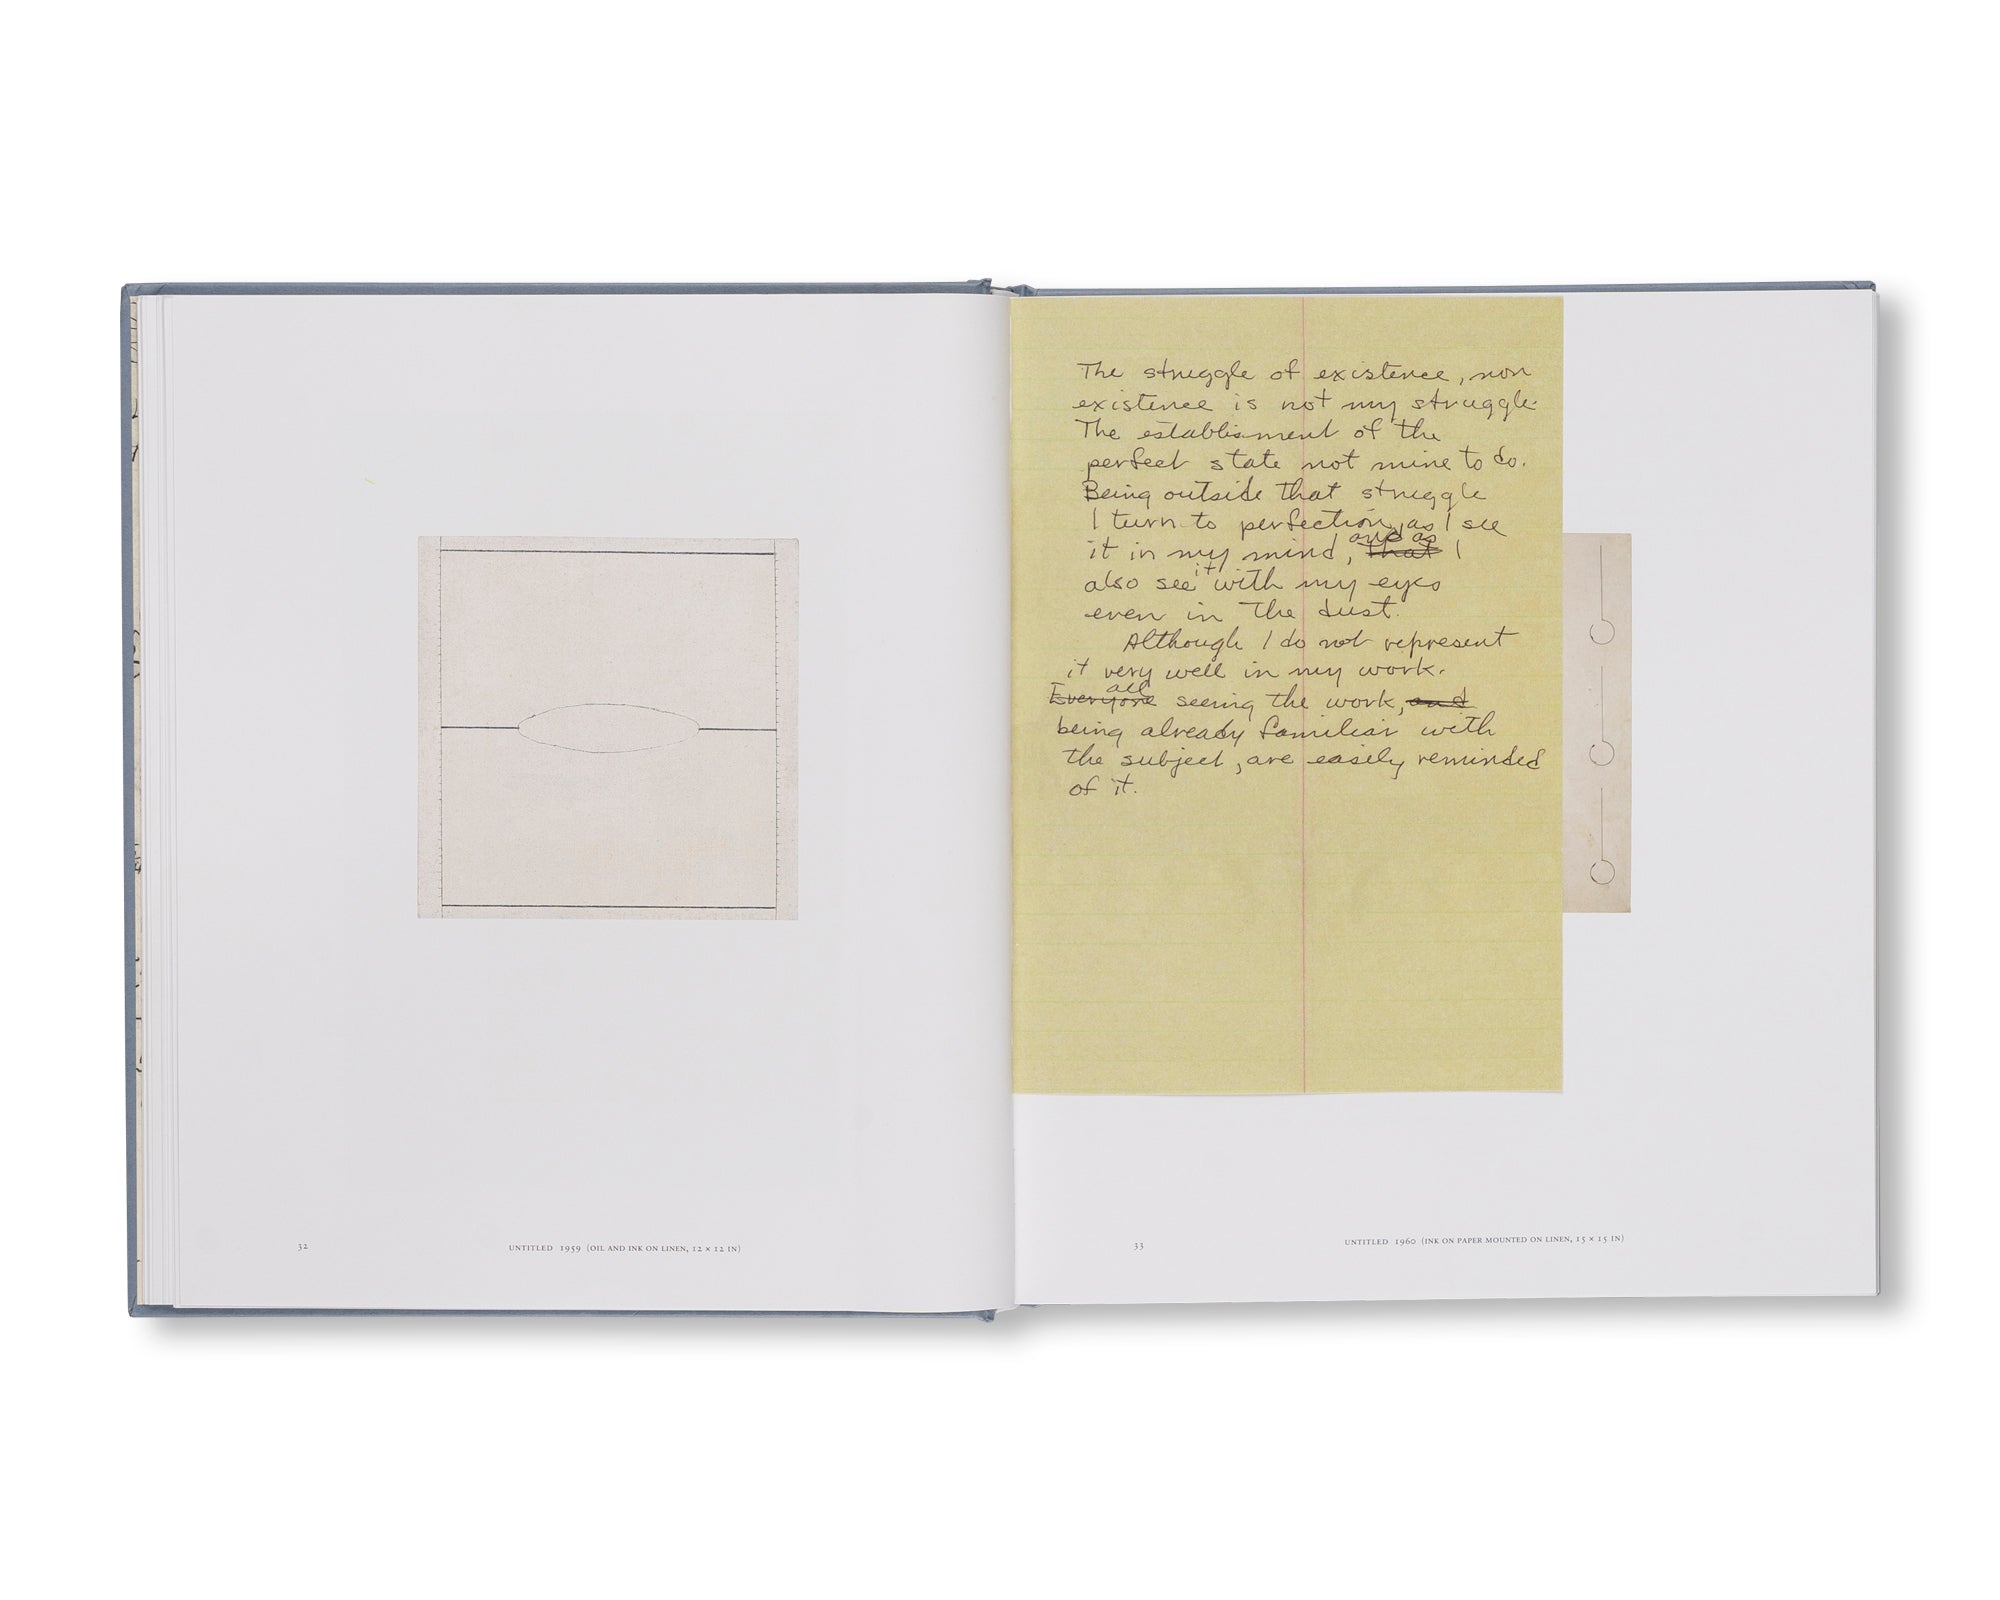 32
UNTITLED 1959 (OIL AND INK ON LINEN, 12 × 12 IN)
The struggle of existence, non
existence is not my struggle.
The establisment of the
perfect state not mine to do.
Being outside that struggle
I turn to perfection, as I see
it in my mind, and as that I
also see it with my eyes
even in the dust.
Although I do not represent
it very well in my work.
Everyone all seeing the work, and
being already familiar with
the subject, are easily reminded
of it.
33
UNTITLED 1960 (INK ON PAPER MOUNTED ON LINEN, 15 × 15 IN)